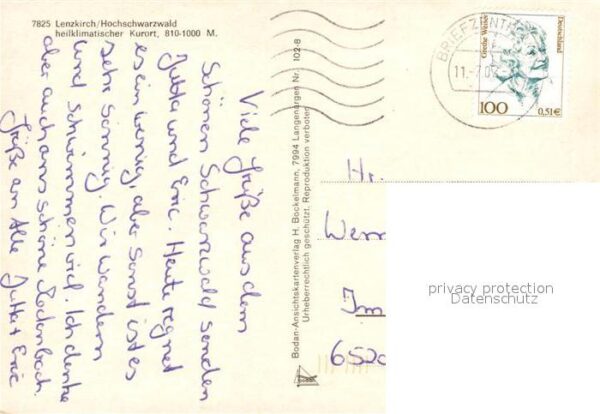 7825 Lenzkirch/Hochschwarzwald
heilklimatischer Kurort, 810-1000 M.
Viele Grüße aus dem
Schönen Schwarzwald senden
Jutta und Eric. Heute regnet
es ein wenig, aber Sonst ist es
sehr Sonnig. Wir wandern
und schwimmen viel. Ich denke
aber auch ans schöne Rodenbach.
Grüße an Alle Jutta + Eric
Bodan-Ansichtskartenverlag H. Bockelmann, 7994 Langenargen Nr. 102-8
Urheberrechtlich geschützt. Reproduktion verboten
BRIEFZENTR
11.-7.0
Grethe Weiser
Deutschland
100
0,51€
Hr.
Wern
Im
6520
privacy protection
Datenschutz